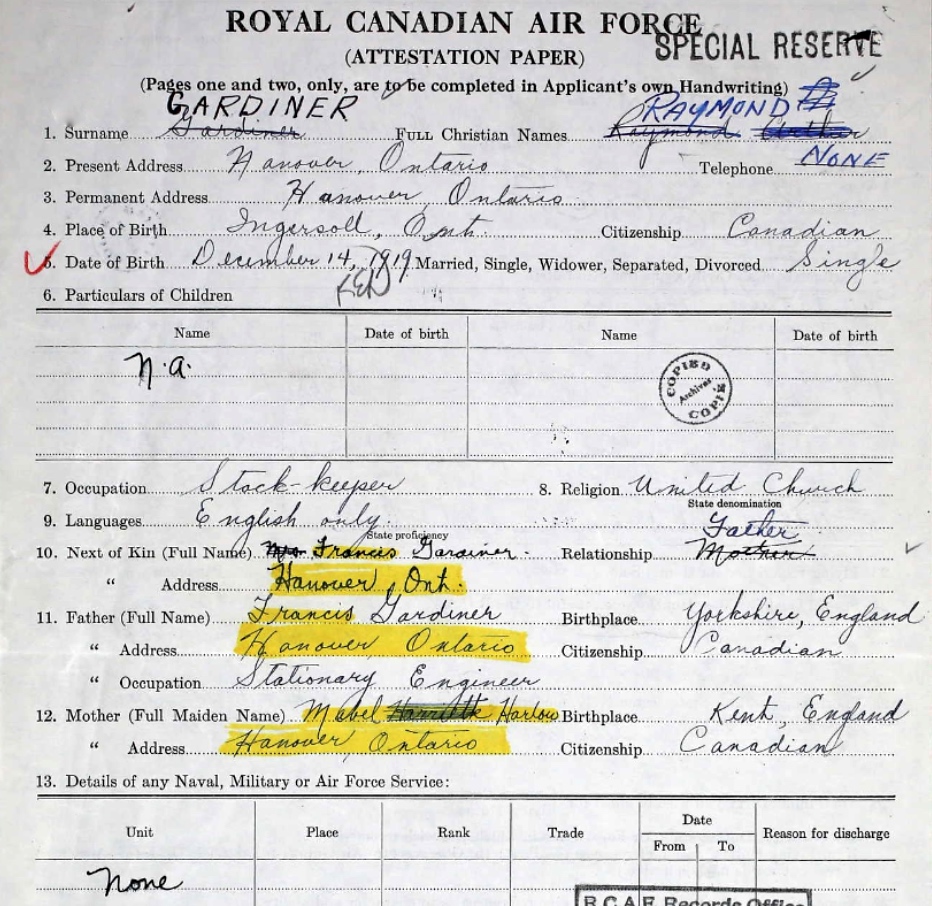 ROYAL CANADIAN AIR FORCE
SPECIAL RESERVE
(ATTESTATION PAPER)
(Pages one and two, only, are to be completed in Applicant's own Handwriting)
GARDINER RAYMOND
1. Surname Gardiner FULL Christian Names Raymond Arthur
2. Present Address Hanover, Ontario Telephone NONE
3. Permanent Address Hanover, Ontario
4. Place of Birth Ingersoll, Ont. Citizenship Canadian
5. Date of Birth December 14, 1919 Married, Single, Widower, Separated, Divorced Single
6. Particulars of Children
Name Date of birth Name Date of birth
n.a.
COPIED Archives COPIÉ
7. Occupation Stock-keeper 8. Religion United Church
State denomination
9. Languages English only.
State proficiency
Father
10. Next of Kin (Full Name) Mrs. Francis Gardiner. Relationship Mother
" Address Hanover, Ont.
11. Father (Full Name) Francis Gardiner Birthplace Yorkshire, England
" Address Hanover, Ontario Citizenship Canadian
" Occupation Stationary Engineer
12. Mother (Full Maiden Name) Mabel Harlow Birthplace Kent, England
" Address Hanover, Ontario Citizenship Canadian
13. Details of any Naval, Military or Air Force Service:
Unit Place Rank Trade Date Reason for discharge
From To
None
R.C.A.F. Records Office